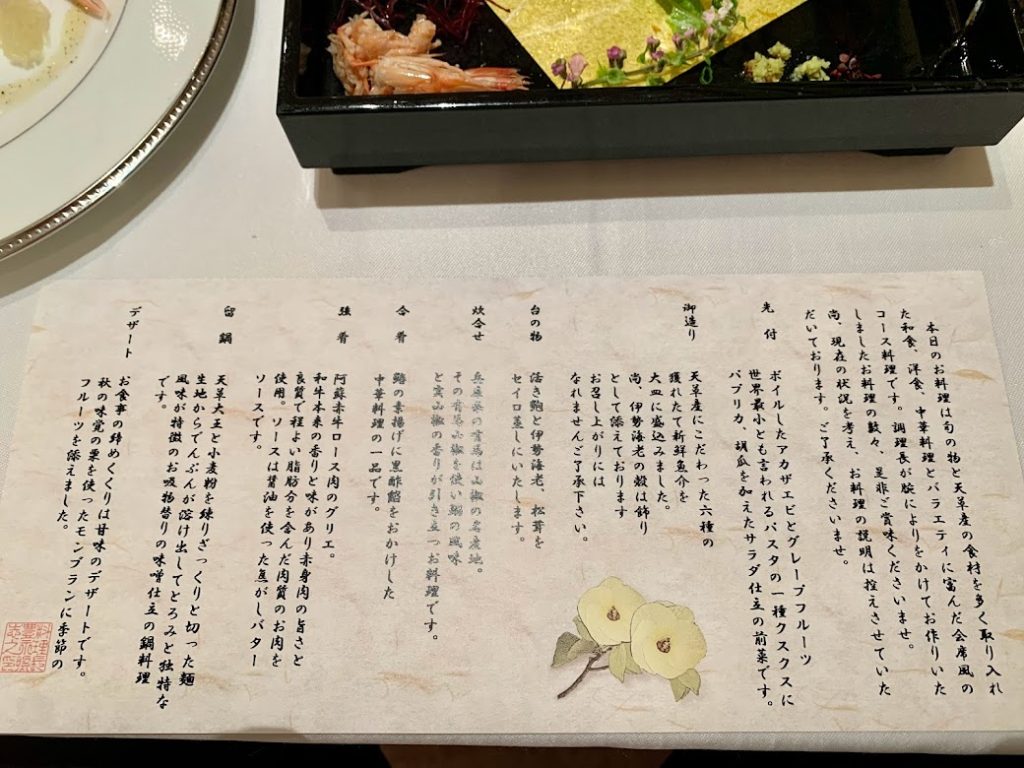 本日のお料理は旬の物と天草産の食材を多く取り入れ
た和食、洋食、中華料理とバラエティに富んだ会席風の
コース料理です。調理長が腕によりをかけてお作りいた
しましたお料理の数々、是非ご賞味くださいませ。
尚、現在の状況を考え、お料理の説明は控えさせていた
だいております。ご了承くださいませ。
先付
ボイルしたアカザエビとグレープフルーツ
世界最小とも言われるパスタの一種クスクスに
パプリカ、胡瓜を加えたサラダ仕立の前菜です。
御造り
天草産にこだわった六種の
獲れたて新鮮魚介を
大皿に盛込みました。
尚、伊勢海老の殻は飾り
として添えております
お召し上がりには
なれませんご了承下さい。
台の物
活き鮑と伊勢海老、松茸を
セイロ蒸しにいたします。
炊合せ
兵庫県の有馬は山椒の名産地。
その有馬山椒を使い鰯の風味
と実山椒の香りが引き立つお料理です。
合肴
の素揚げに黒酢餡をおかけした
中華料理の一品です。
強肴
阿蘇赤牛ロース肉のグリエ。
和牛本来の香りと味があり赤身肉の旨さと
良質で程よい脂肪分を含んだ肉質のお肉を
使用。ソースは醤油を使った焦がしバター
ソースです。
留鍋
天草大王と小麦粉を練りざっくりと切った麺
生地からでんぷんが溶け出してとろみと独特な
風味が特徴のお吸物替りの味噌仕立の鍋料理
です。
デザート
お食事の締めくくりは甘味のデザートです。
秋の味覚の栗を使ったモンブランに季節の
フルーツを添えました。
料理長